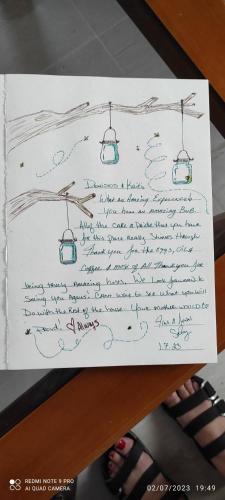 What an Amazing Experience
You have an Amazing BnB.
All the Care & Pride that you have
for this place Really Shines through
Thank you for the eggs, Olive
& most of All Thank you for
being truly Amazing hosts. We Look forward to
Seeing you Again. Can't wait to see what you will
Do with the Rest of the house. Your mother would be
Proud! Always
REDMI NOTE 9 PRO
AI QUAD CAMERA
02/07/2023 19:49